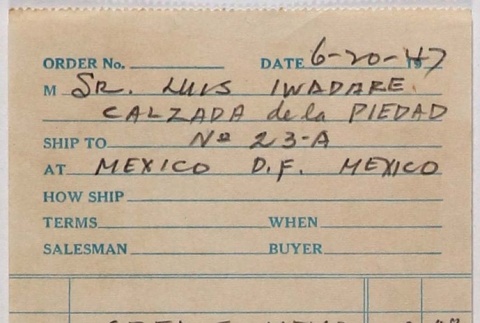 ORDER No. DATE 6-20-47
M SR. LUIS IWADARE
CALZADA de la PIEDAD
SHIP TO Nº 23-A
AT MEXICO D.F. MEXICO
HOW SHIP
TERMS WHEN
SALESMAN BUYER